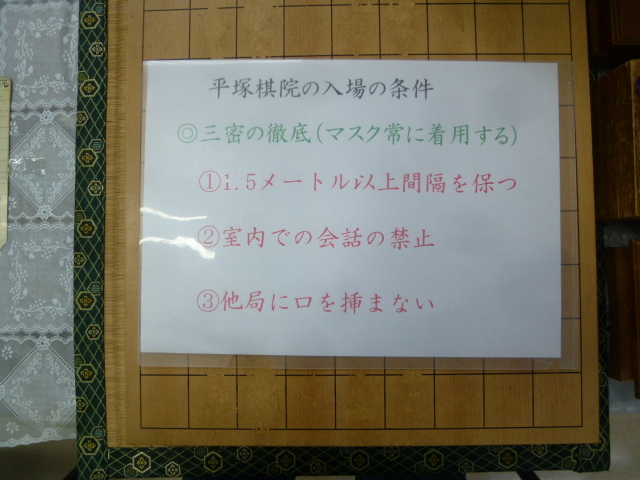 平塚棋院の入場の条件
◎三密の徹底(マスク常に着用する)
①1.5メートル以上間隔を保つ
②室内での会話の禁止
③他局に口を挿まない